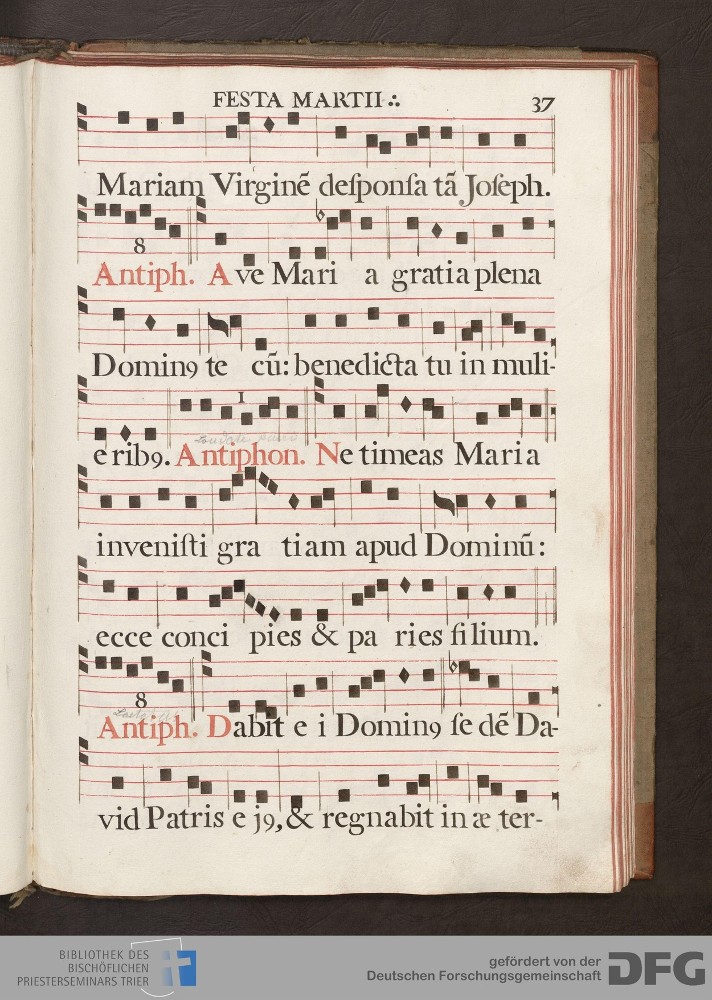 FESTA MARTII ∴ 37
Mariam Virginē deſponſa tā Joſeph.
8
Antiph. Ave Mari a gratia plena
Domin9 te cū: benedicta tu in muli-
1
erib9. Antiphon. Ne timeas Maria
inveniſti gra tiam apud Dominū:
ecce conci pies & pa ries filium.
8
Antiph. Dabit e i Domin9 ſe dē Da-
vid Patris e j9, & regnabit in æ ter-
BIBLIOTHEK DES
BISCHÖFLICHEN
PRIESTERSEMINARS TRIER
gefördert von der
Deutschen Forschungsgemeinschaft DFG